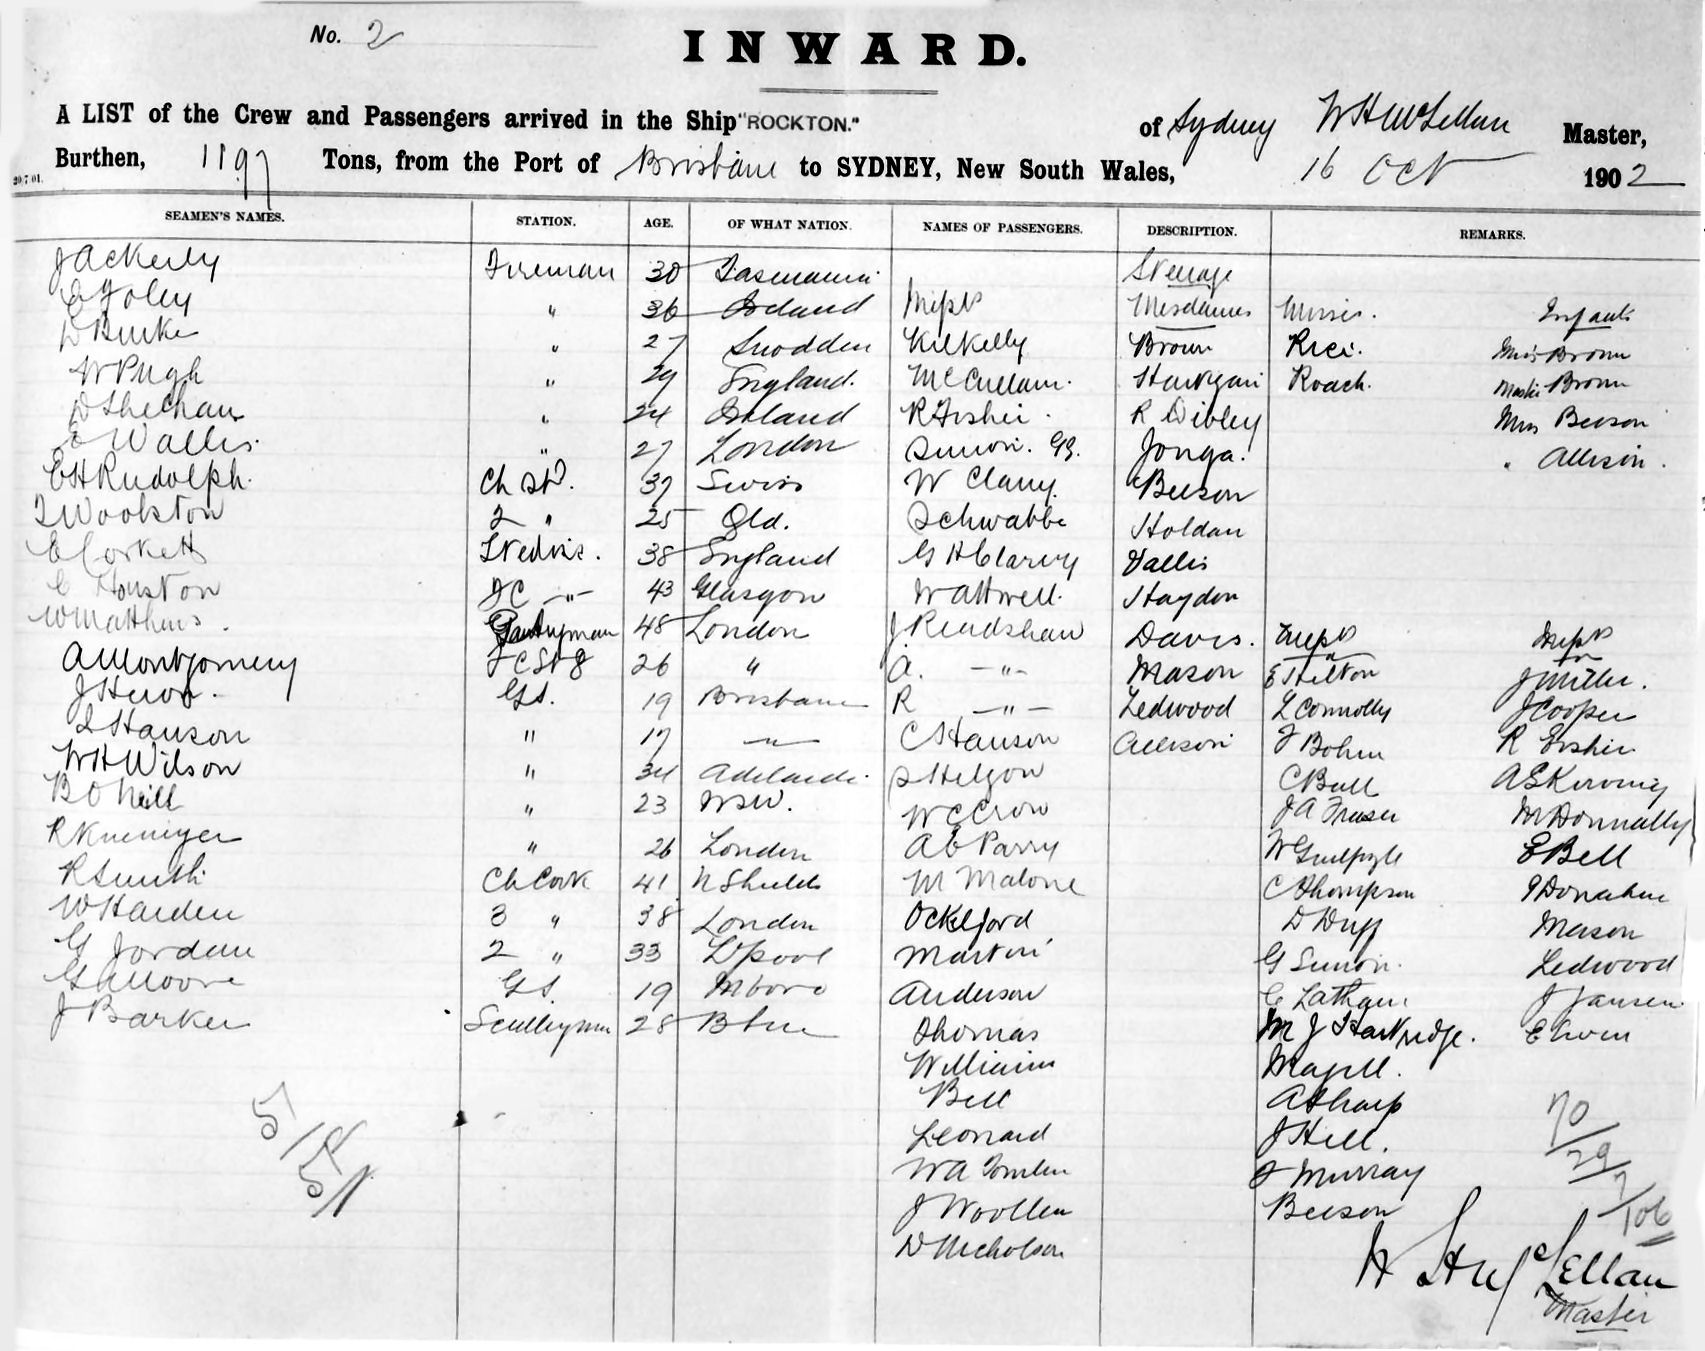 No. 2
INWARD.
A LIST of the Crew and Passengers arrived in the Ship "ROCKTON." of Sydney W H McLellan Master,
Burthen, 1197 Tons, from the Port of Brisbane to SYDNEY, New South Wales, 16 Oct 1902
20.7.01.
SEAMEN'S NAMES. STATION. AGE. OF WHAT NATION. NAMES OF PASSENGERS. DESCRIPTION. REMARKS.
J Ackerly Fireman 30 Tasmania Steerage
C Foley " 36 Ireland Messrs Mesdames Misses. Infants
D Burke " 27 Kilkelly Brown Rice. Miss Brown
W Pugh " 29 England. McCullam. Roach. Master Brown
D Sheehan " 24 Ireland R Fisher. R Dibley Miss Beeson
E Wallis. " 27 London Simon. Jonga. " Allison.
E H Rudolph. Ch Std. 37 Swiss W Clary. Beeson
Woolston 2 " 25 Qld. Schwabbe Holdan
E Corkett 38 England G H Clarey Vallis
C Houston 43 Glasgow W Attwell. Haydon
W Matthews. Pantryman 48 London J Readshaw Davis. Messrs Messrs
A Montgomery 26 " A. -"- Mason E Hilton J Miller.
J Heron. G.S. 19 Brisbane R -"- Ledwood L Connolly J Cooper
Hanson " 17 -"- C Hanson Allison F Bohm R Fisher
W H Wilson " 34 Adelaide. C Bull
B O Neill " 23 NSW. W C Crow J A Fraser M Donnally
" 26 London A E Parry E Bell
R Smith Ch Cook 41 N Shields M Malone C Thompson Donahue
W Harden 3 " 38 London Ockelford D Duff Mason
G Jordan 2 " 33 L'pool Martin G Simon. Ledwood
G A Moore G.S. 19 M'boro Anderson E Latham J Jansen
J Barker Sculleryman 28 B'bne Thomas M J Hartridge.
Williams Magill.
Bell A Sharp
Leonard J Hill.
W A Tomlin F Murray
J Woollen Beeson
D Nicholson
51
51
70
29
7
106
W H McLellan
Master